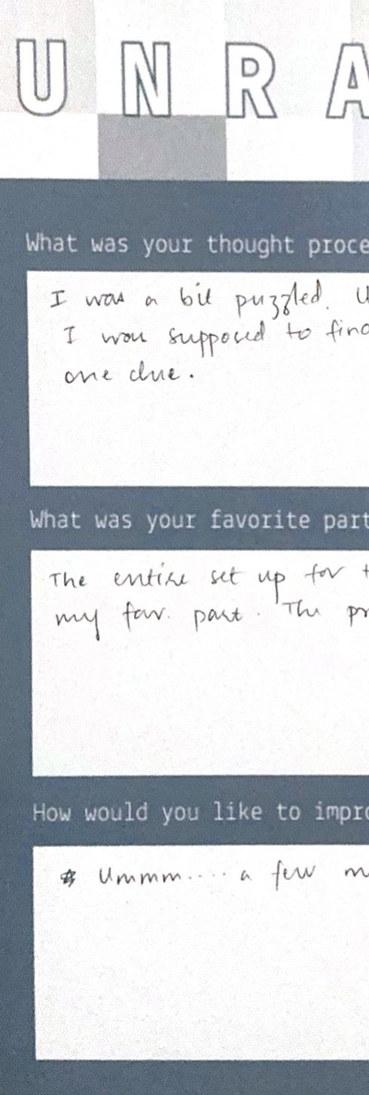 U N R A
What was your thought proce
I was a bit puzzled. U
I was supposed to find
one clue.
What was your favorite part
The entire set up for t
my fav. part. The pr
How would you like to impro
Ummm.... a few m